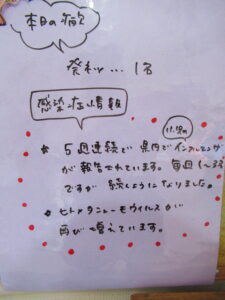 本日の病欠
発熱… 1名
感染症情報
11.18の
★ 5週連続で 県内でインフルエンザ
が報告されています。毎週1〜2名
ですが 続くようになりました。
★ ヒトメタニューモウイルスが
再び増えています。